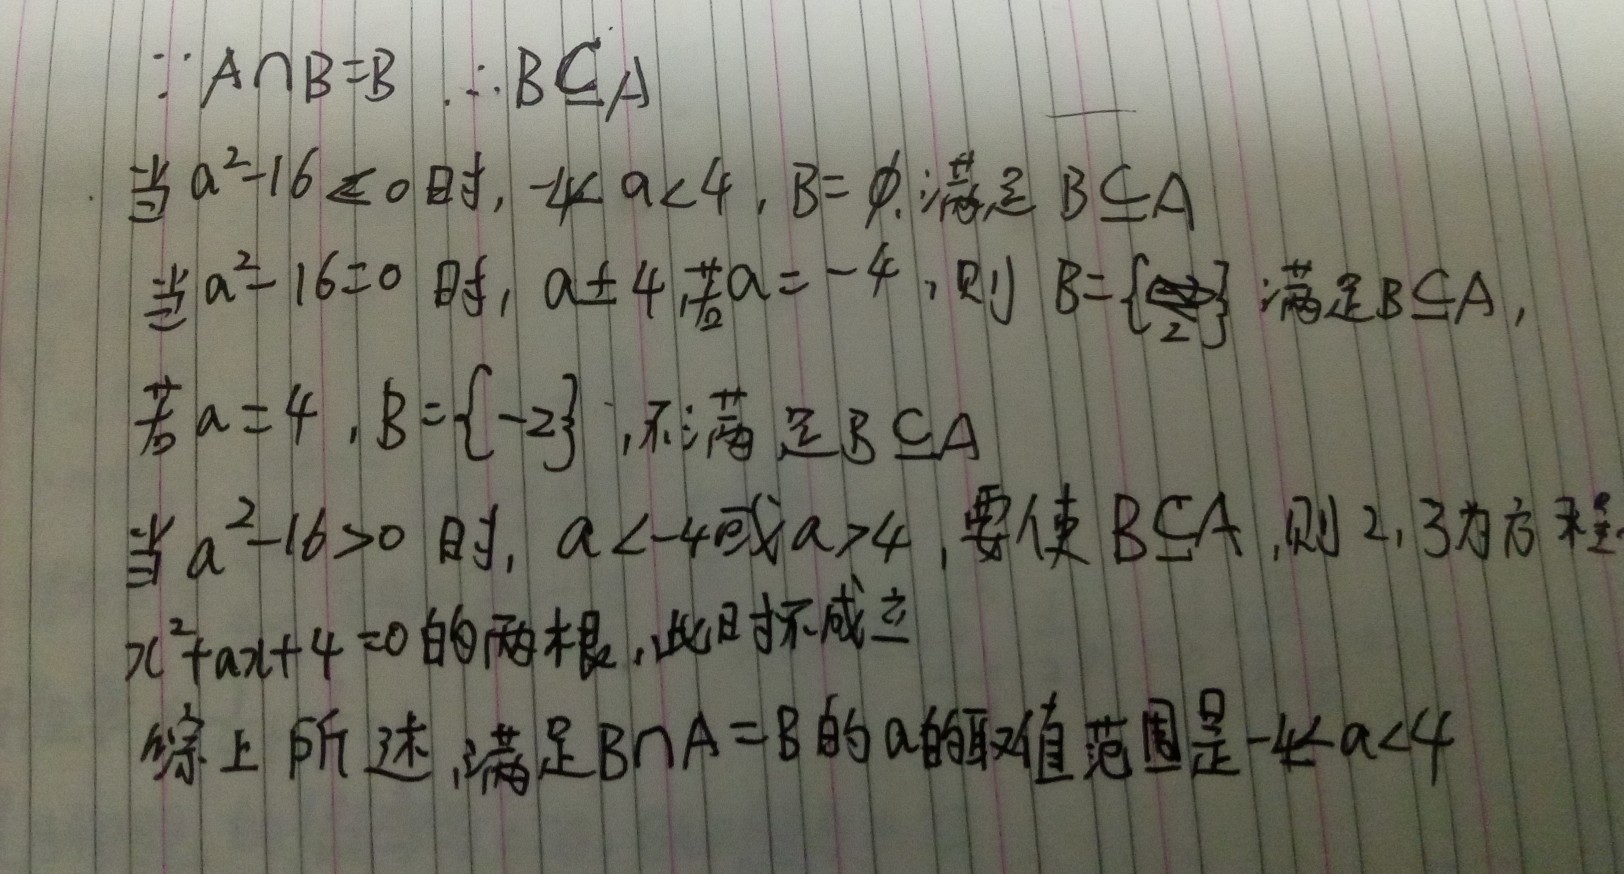 ∵A∩B=B ∴B⊆A
当a²-16<0时,-4<a<4,B=∅.满足B⊆A
当a²-16=0时,a=±4,若a=-4,则B={2}满足B⊆A,
若a=4,B={-2},不满足B⊆A
当a²-16>0时,a<-4或a>4,要使B⊆A,则2,3为方程
x²+ax+4=0的两根,此时不成立
综上所述,满足B∩A=B的a的取值范围是-4≤a<4